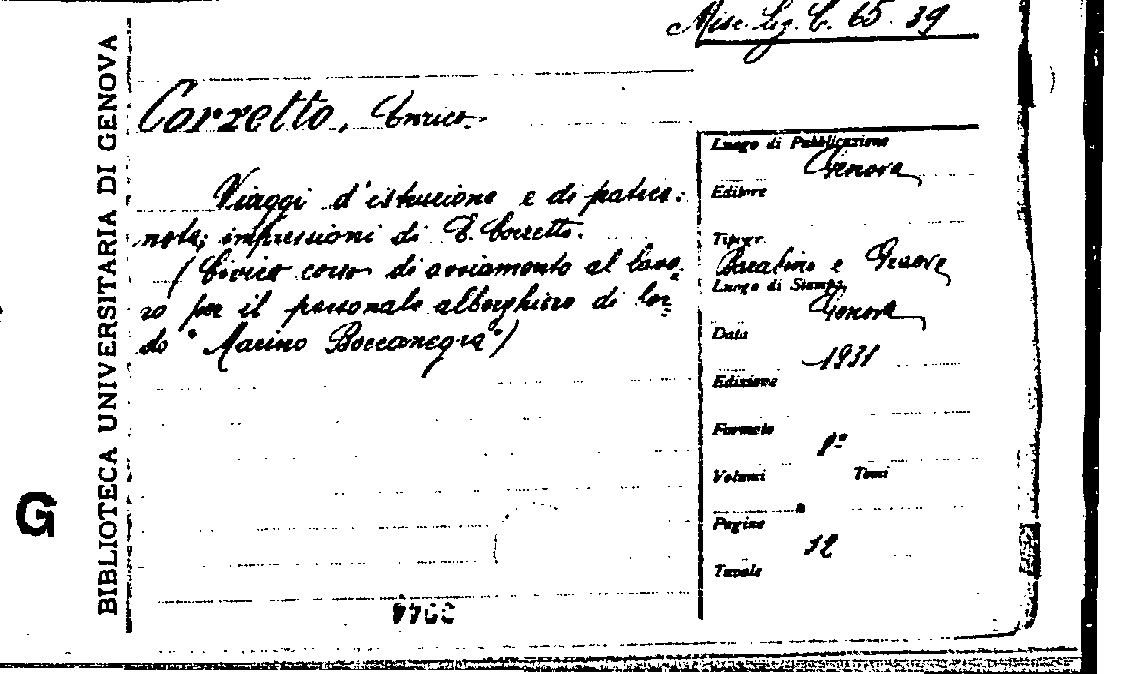 Misc. Lig. C. 65. 39
BIBLIOTECA UNIVERSITARIA DI GENOVA
Corzetto, Enrico.
Viaggi d'istruzione e di pratica:
note; impressioni di E. Corzetto.
(Civico corso di avviamento al lavo-
ro per il personale alberghiero di bor-
do "Marino Boccanegra")
Luogo di Pubblicazione
Genova
Editore
Tipogr.
e
Luogo di Stampa
Genova
Data
1931
Edizione
Formato
8º
Volumi Tomi
Pagine
12
Tavole
G